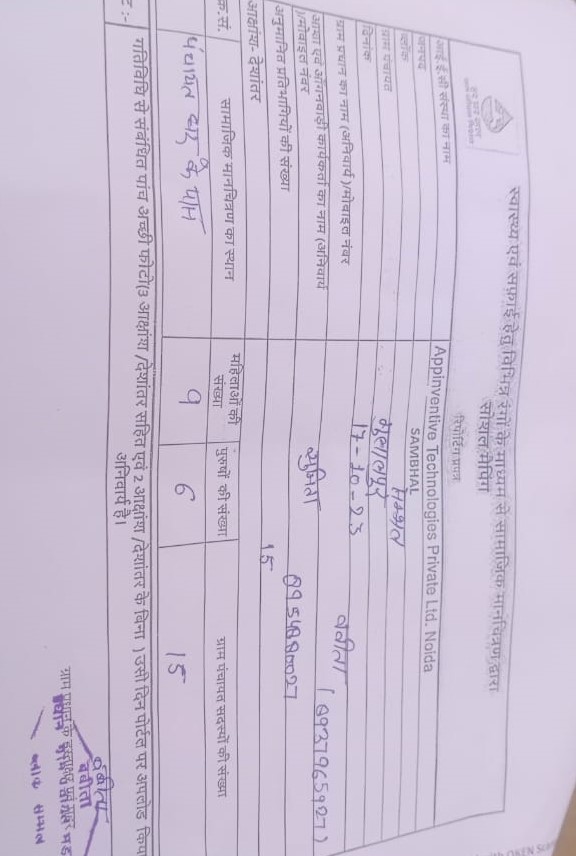 स्वास्थ्य एवं सफाई हेतु विभिन्न रंगों के माध्यम से सामाजिक मानचित्रण द्वारा
सोशल मैपिंग
रिपोर्टिंग प्रपत्र
आई ई सी संस्था का नाम Appinventive Technologies Private Ltd. Noida
जनपद SAMBHAL
ब्लॉक सम्भल
ग्राम पंचायत
दिनांक 17-10-23
ग्राम प्रधान का नाम (अनिवार्य )/मोबाइल नंबर बबीता (8937965927)
आशा एवं आँगनवाड़ी कार्यकर्ता का नाम (अनिवार्य सुमिता
)/मोबाइल नंबर
अनुमानित प्रतिभागियों की संख्या 15
अक्षांश- देशांतर
क्र.सं. सामाजिक मानचित्रण का स्थान महिलाओं की संख्या पुरुषों की संख्या ग्राम पंचायत सदस्यों की संख्या
पंचायत घर के पास 9 6 15
गतिविधि से संबंधित पांच अच्छी फोटो(3 आक्षांश /देशांतर सहित एवं 2 आक्षांश /देशांतर के बिना ) उसी दिन पोर्टल पर अपलोड किय
अनिवार्य है।
बबीता
ग्राम प्रधान के हस्ताक्षर एवं मुहर